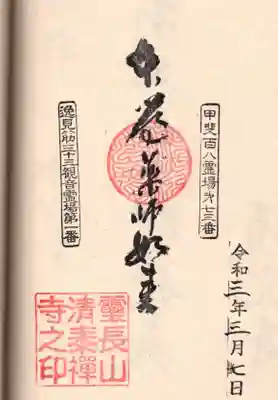 甲斐百八霊場㐧七三番
薬師如来
逸見筋三十三観音霊場第一番
令和三年三月七日
靈長山
清泰禪
寺之印